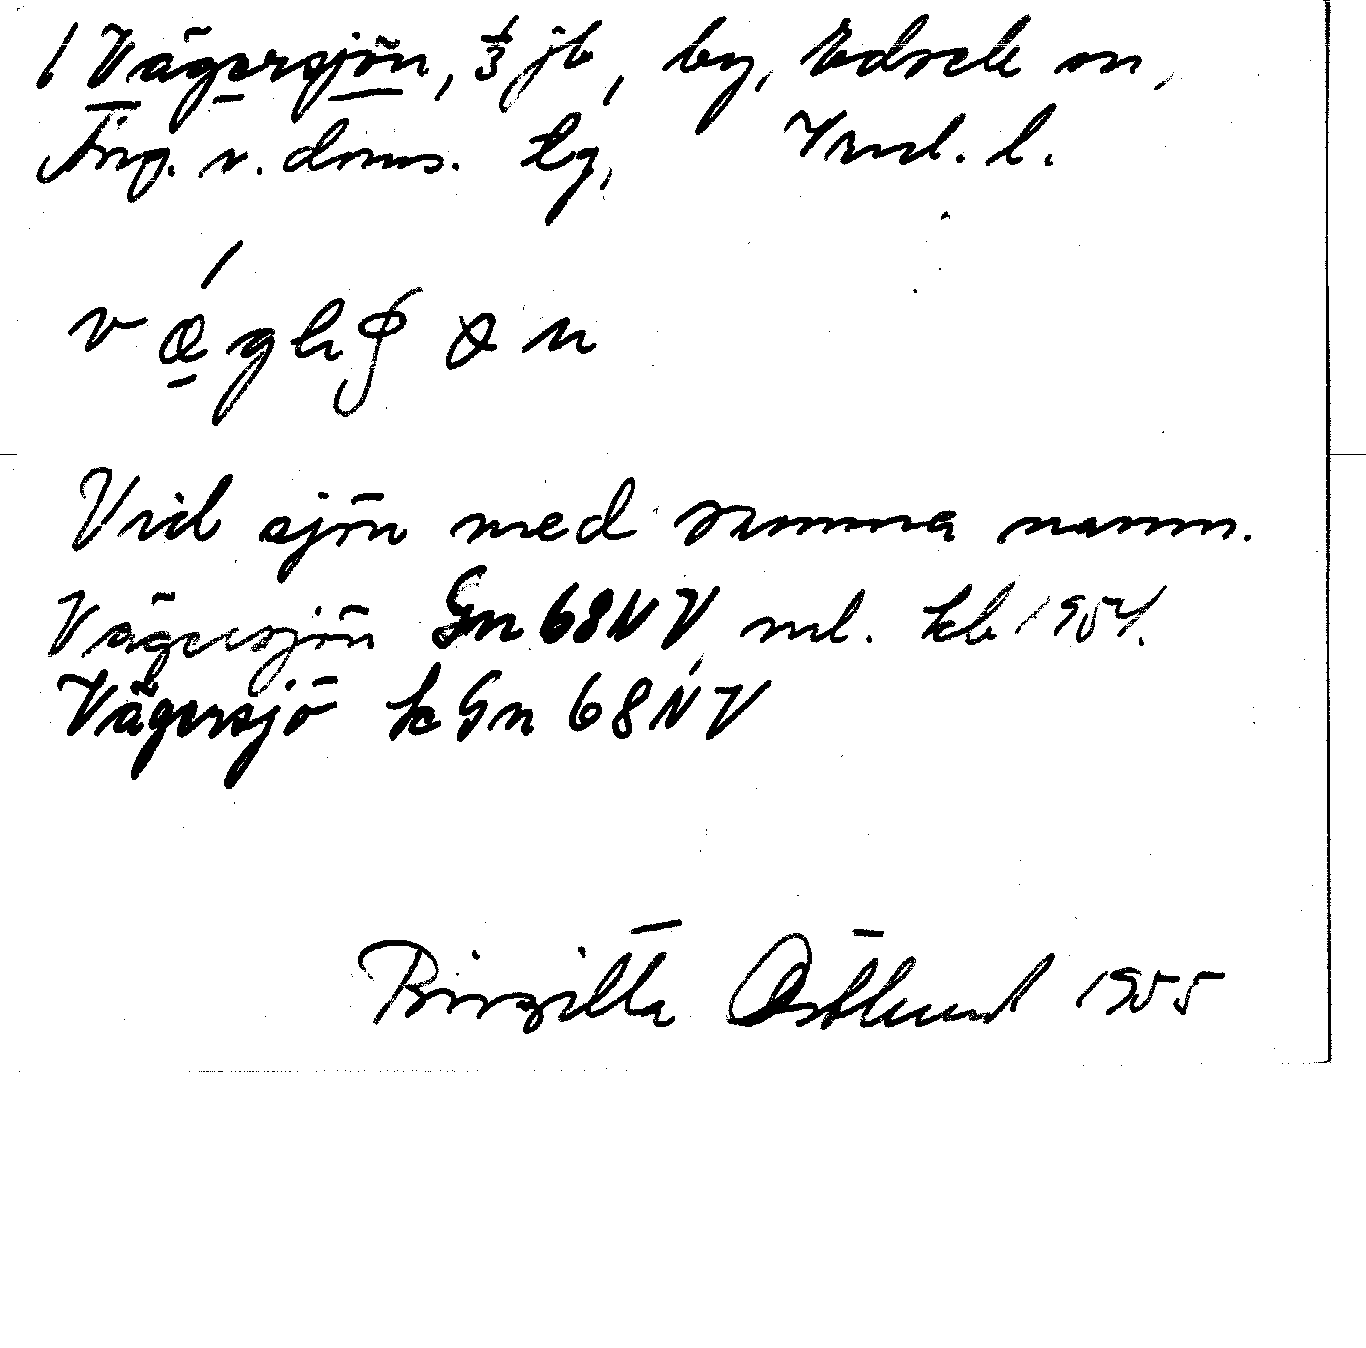 1 Vägersjön, 1/3 jb, by, Edsele sn,
Ång. v. doms. tg, Ånml. l.
Vid sjön med samma namn.
Vägersjön Gn 68NV ml. kb 1954.
Vägersjö k Gn 68NV
Birgitta Östlund 1955